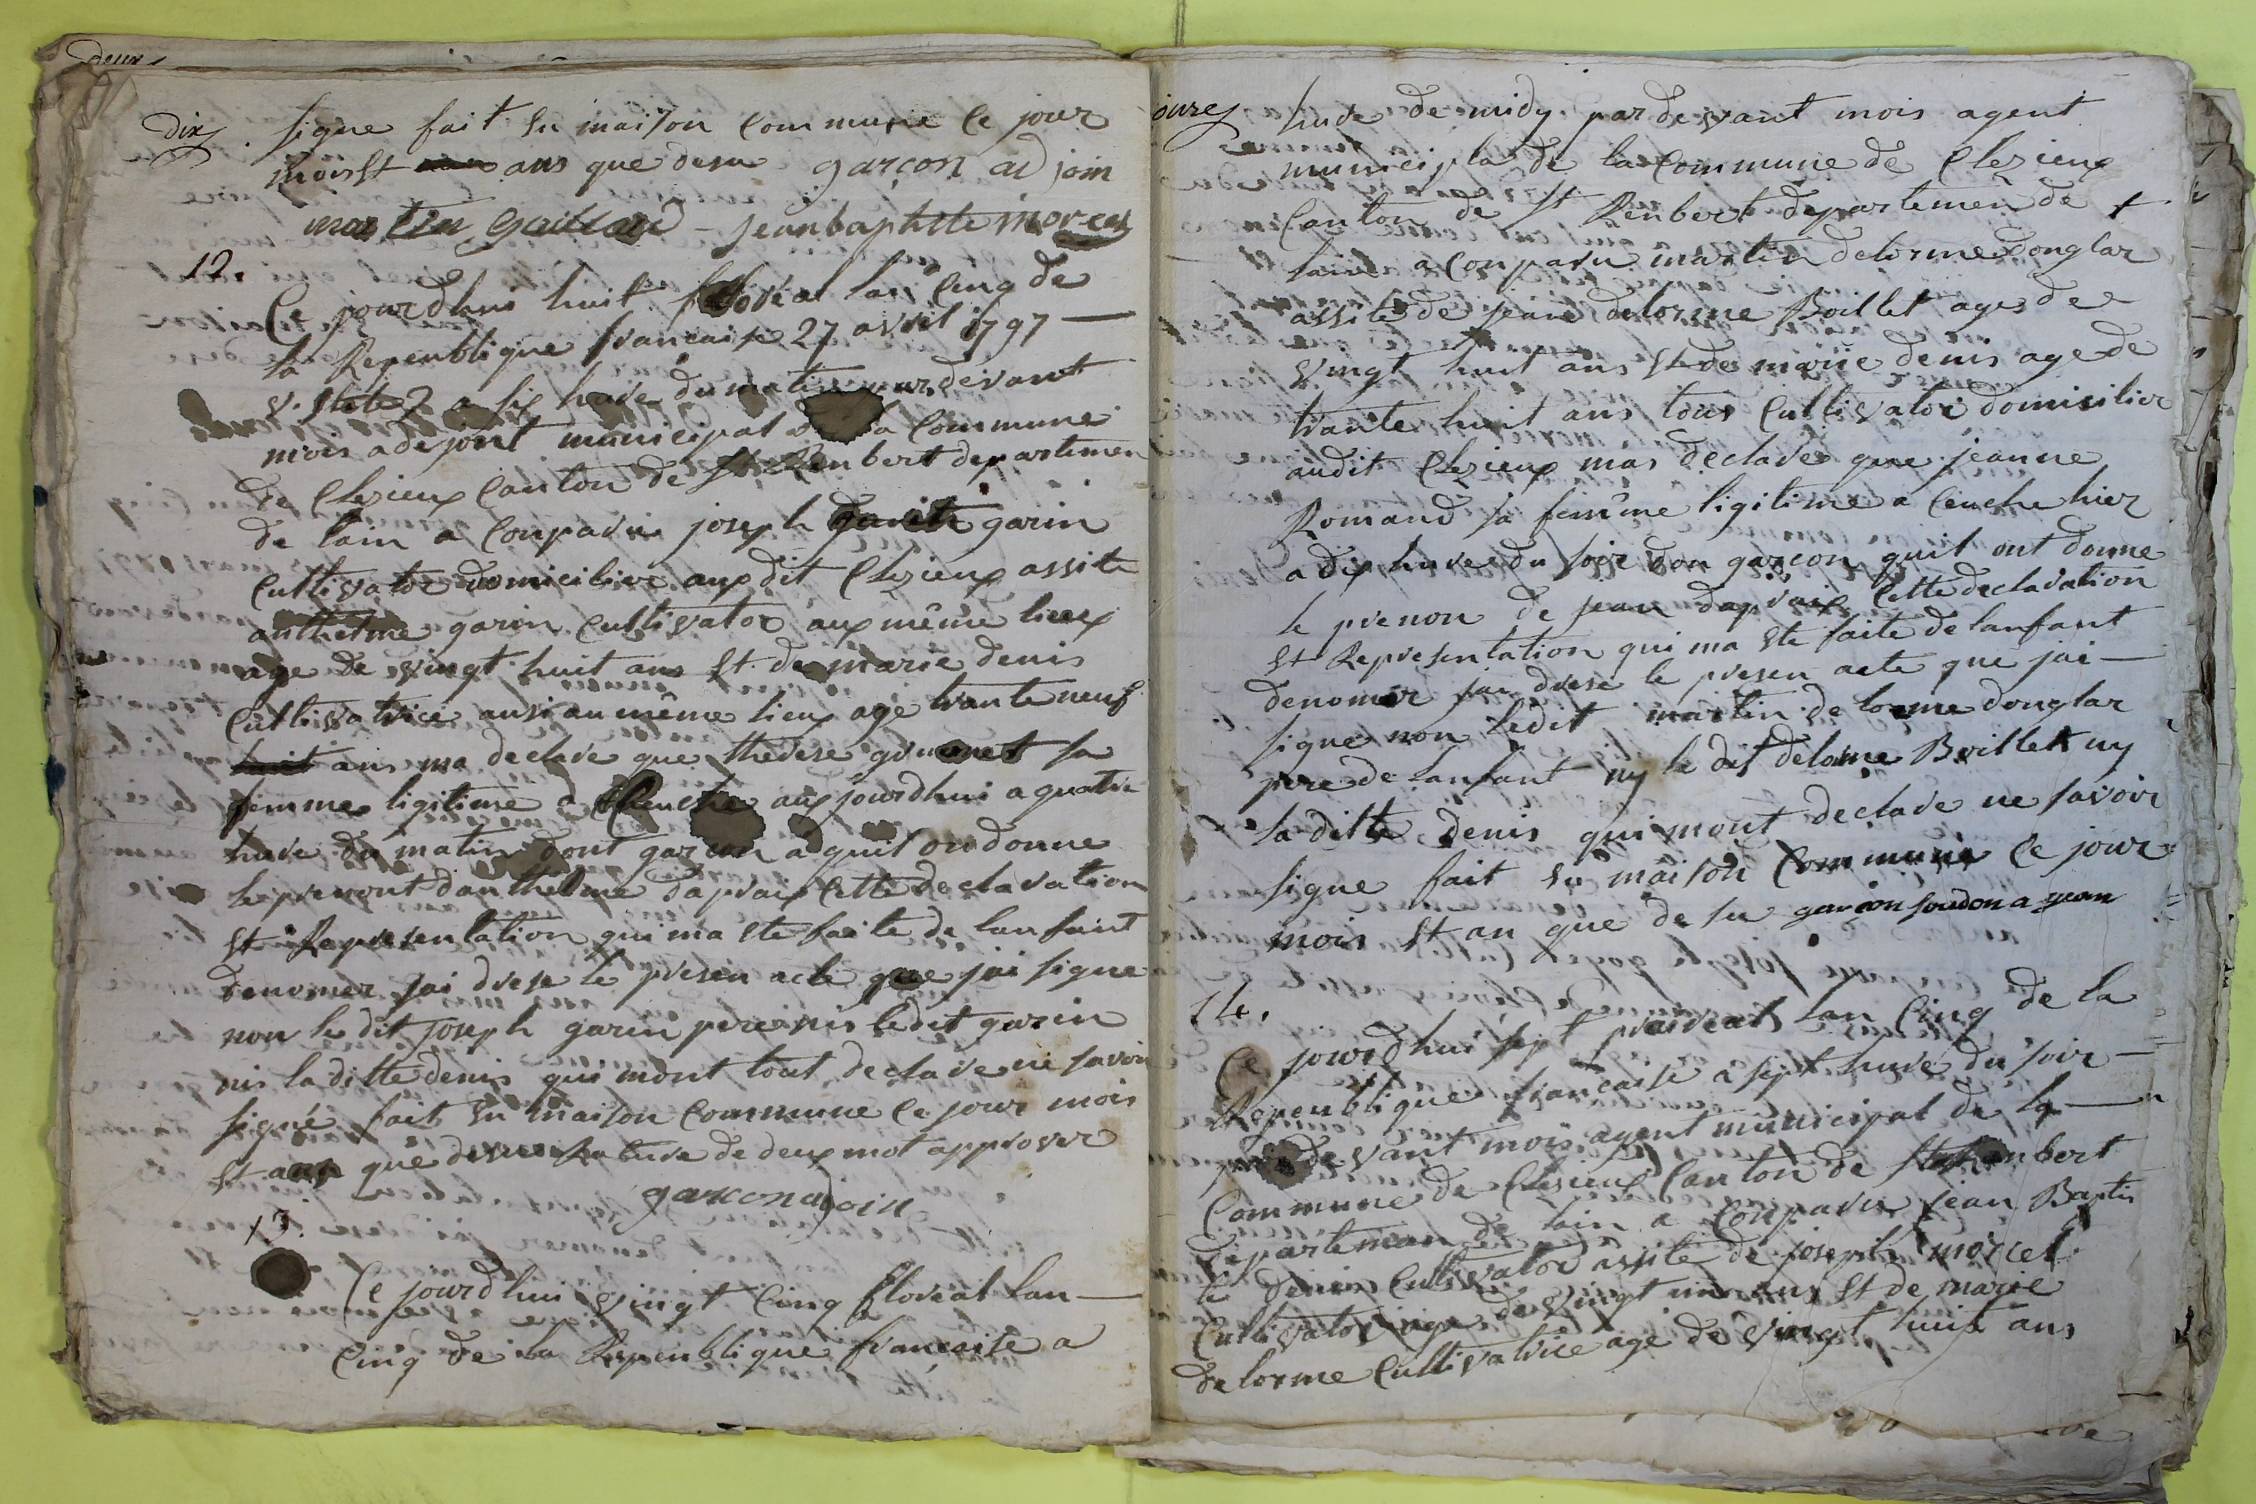 deux
dix
signe fait su maison commune ce jour
mois st ans que desu garçon adjoin
martin gaillard - jeanbaptiste morcel
12.
Ce jourdhui huit floréal lan cinq de
la Repeublique francaise 27 avril 1797 —
v. stile a six heure du matin par devant
mois adejoint municipal de la Commune
de Clezieux Canton de St Renbert departemen
de lain a Conparu joseph garin
Cultivator domicilier aux dit Clezieux assite
anthelme garin Cultivator aux même lieux
age de vingt huit ans st de marie denis
Cultivatrice ausi au même lieux age trante neuf
huit ans ma declare que therese
sa
femme ligitime a aux jourdhui a quatre
heure du matin dont garcon a quil on donne
le prenont danthelme daprai cette declaration
st Representation qui ma ste faite de lanfant
denomer jai drese le presen acte que jai signe
non le dit joseph garin pere nis le dit garin
nis la ditte denis qui mont tout declare ne savoir
signé fait su maison commune ce jour mois
st ans que desu Rature de deux mot approver
garcon adjoin
13.
Ce jourdhui vingt cinq floreal lan —
Cinq de la Repeublique francaise a
onze
heure de midy par devant mois agent
municipla de la commune de Clezieux
Canton de St Renbert departemen de +
lain a Conparu martin delorme donglar
assité de jean delorme Boillet ages de
vingt huit ans st de marie denis age de
trante huit ans tous Cultivator domisilier
audit Clezieux mas declare que jeanne
Romand sa femme ligitime a Ceuche hier
a dix heure du soir don garcon quil ont donne
le prenon de jean daprais Cette declaration
st Representation qui ma ste faite de lanfant
denomer jai drese le presen acte que jai —
signe non ledit martin delorme donglar
pere de lanfant ny le dit delorme Boillet ny
la ditte denis qui mont declare ne savoir
signe fait su maison Commune ce jour
mois st an que de su garcon
14.
Ce jourdhui sept prairéal lan Cinq de la
Repeublique francaise a sept heure du soir —
par devant mois agent municipal de la —
Commune de Clezieux Canton de St Renbert
departeman de lain a Conparu jean Baptis
te denis Cultivator assite de joseph morcel
Cultivator age de vingt ans st de marie
delorme Cultivatrice age de vingt ans